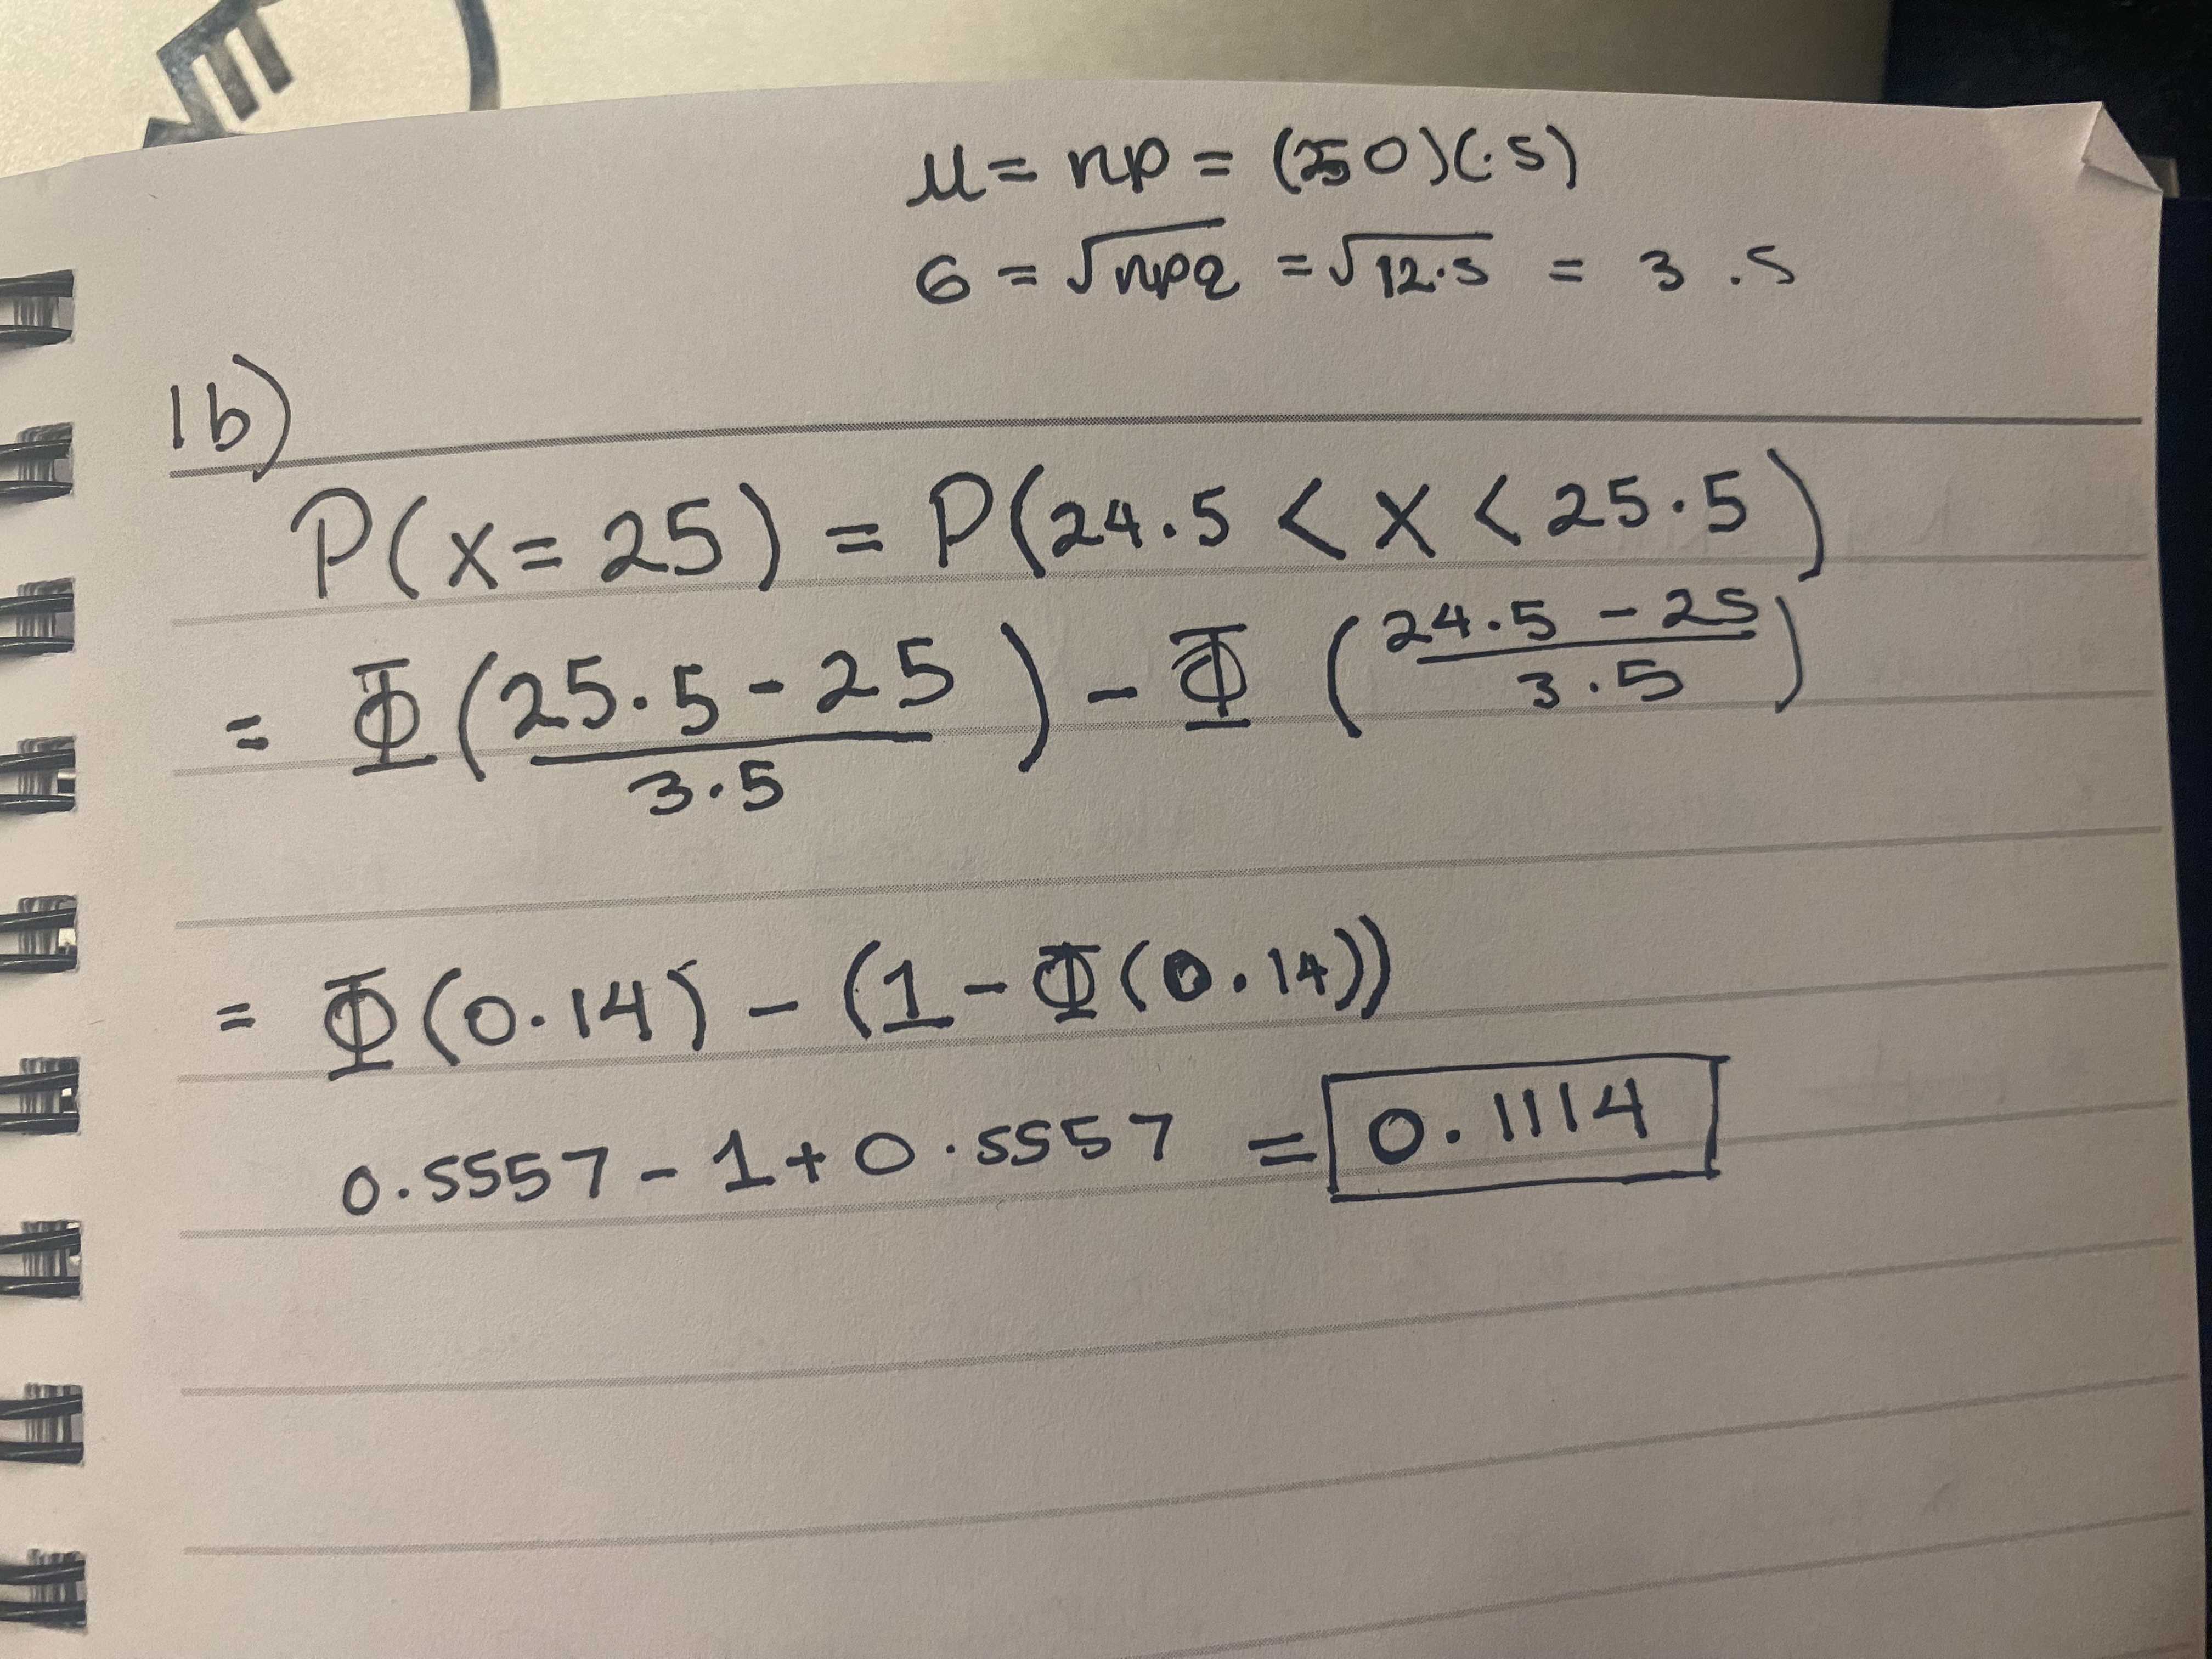 μ = np = (50)(.5)
σ = √npq = √12.5 = 3.5
1b)
P(x = 25) = P(24.5 < x < 25.5)
= Φ(25.5 - 25 / 3.5) - Φ(24.5 - 25 / 3.5)
= Φ(0.14) - (1 - Φ(0.14))
0.5557 - 1 + 0.5557 = 0.1114